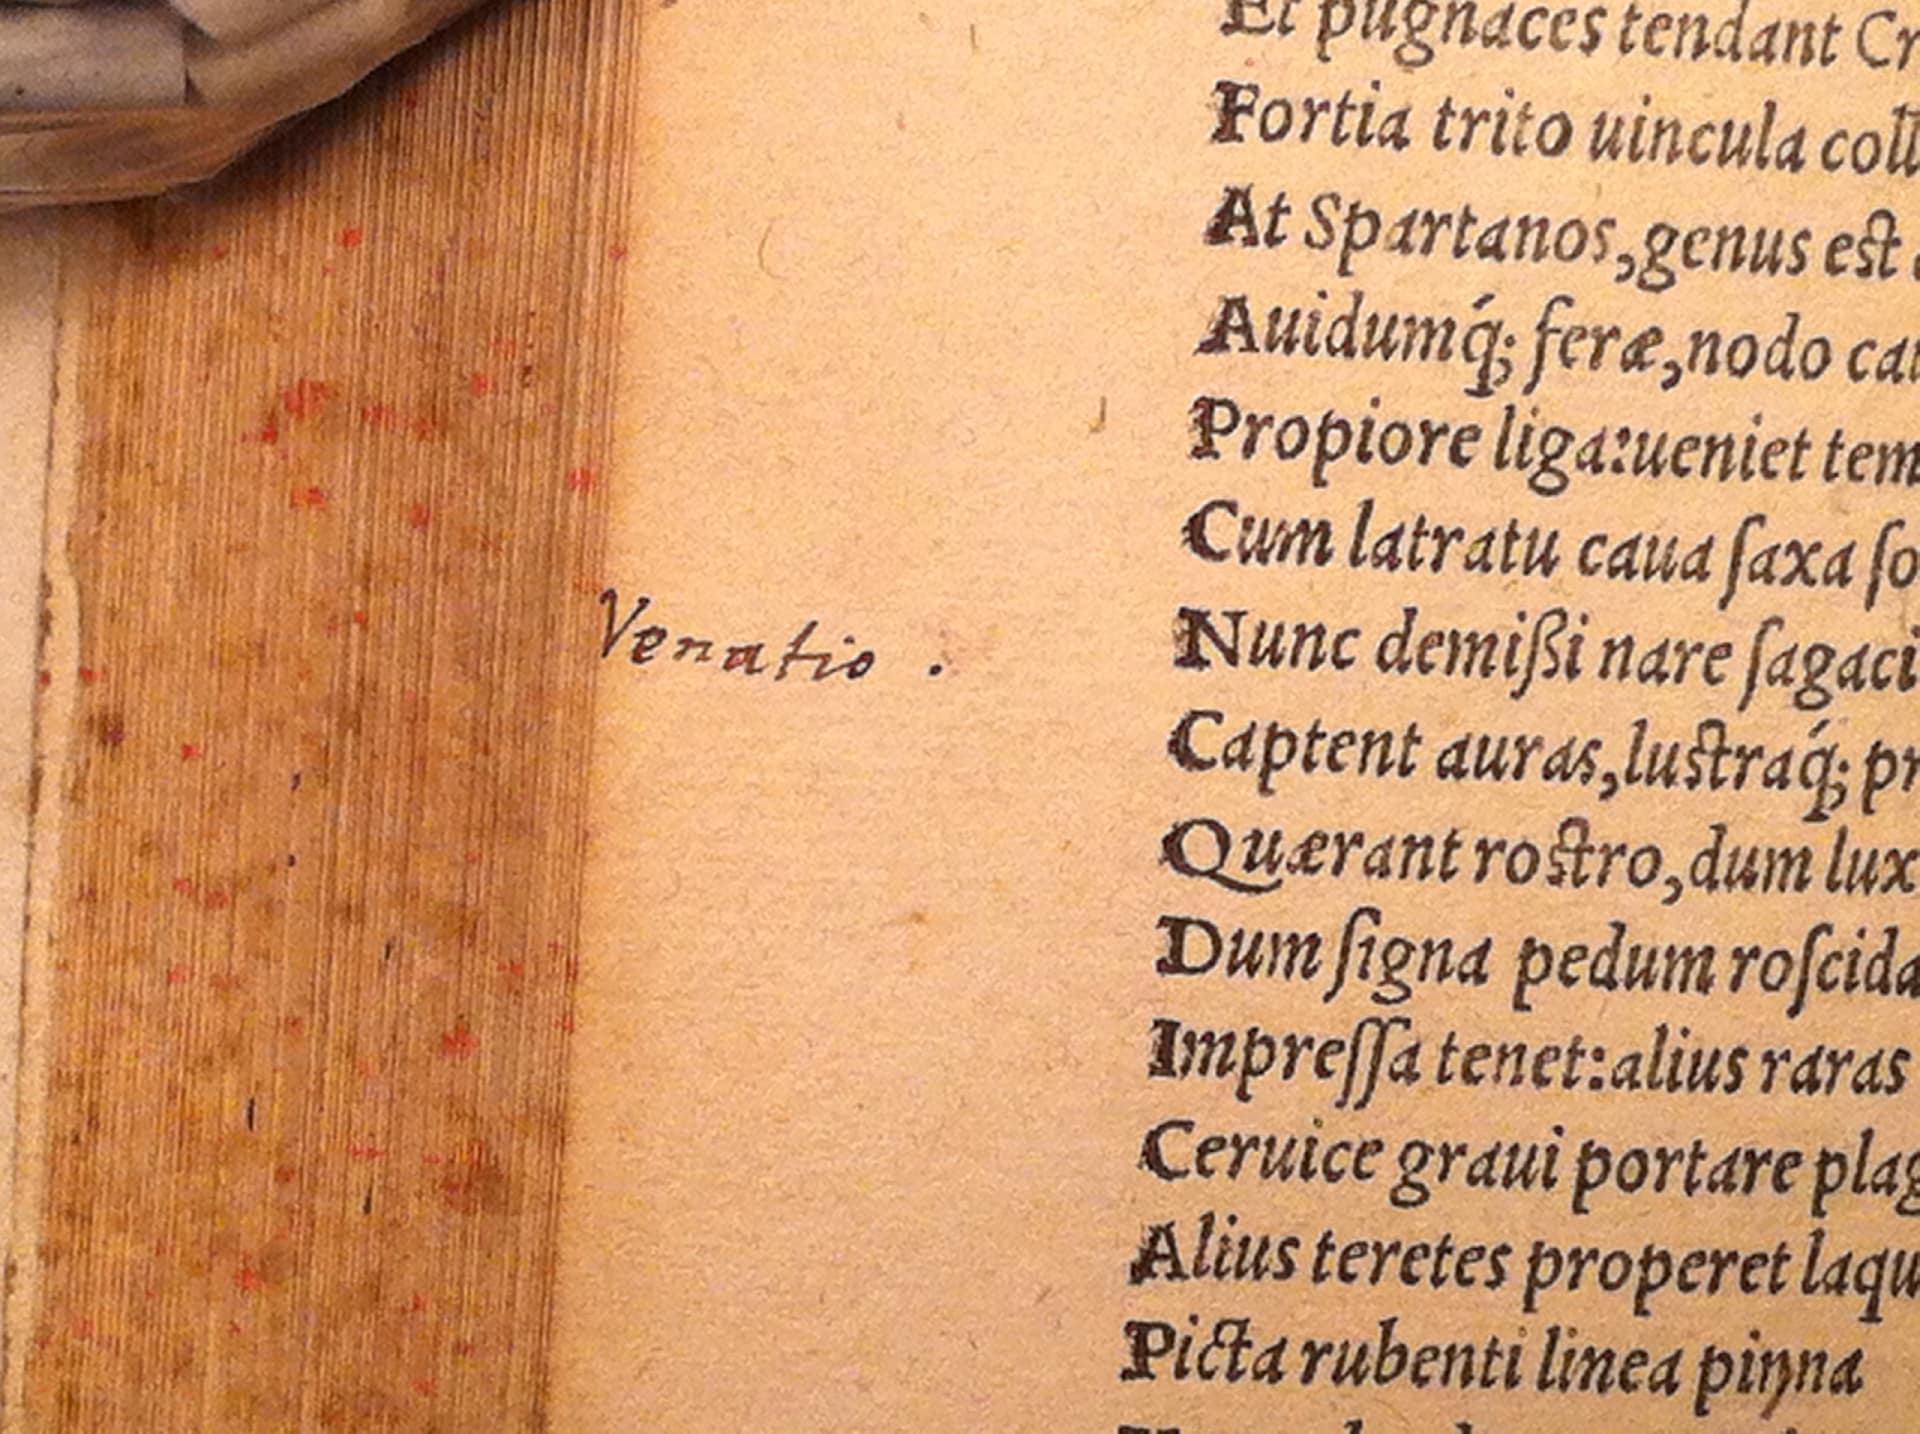 Et pugnaces tendant Cr
Fortia trito uincula coll
At Spartanos, genus est
Auidumq́; feræ, nodo cau
Propiore liga: ueniet tem
Cum latratu caua ſaxa ſo
Venatio .
Nunc demißi nare ſagaci
Captent auras, luſtraq́; pr
Quærant roſtro, dum lux
Dum ſigna pedum roſcida
Impreſſa tenet: alius raras
Ceruice graui portare plag
Alius teretes properet laqu
Picta rubenti linea pinna